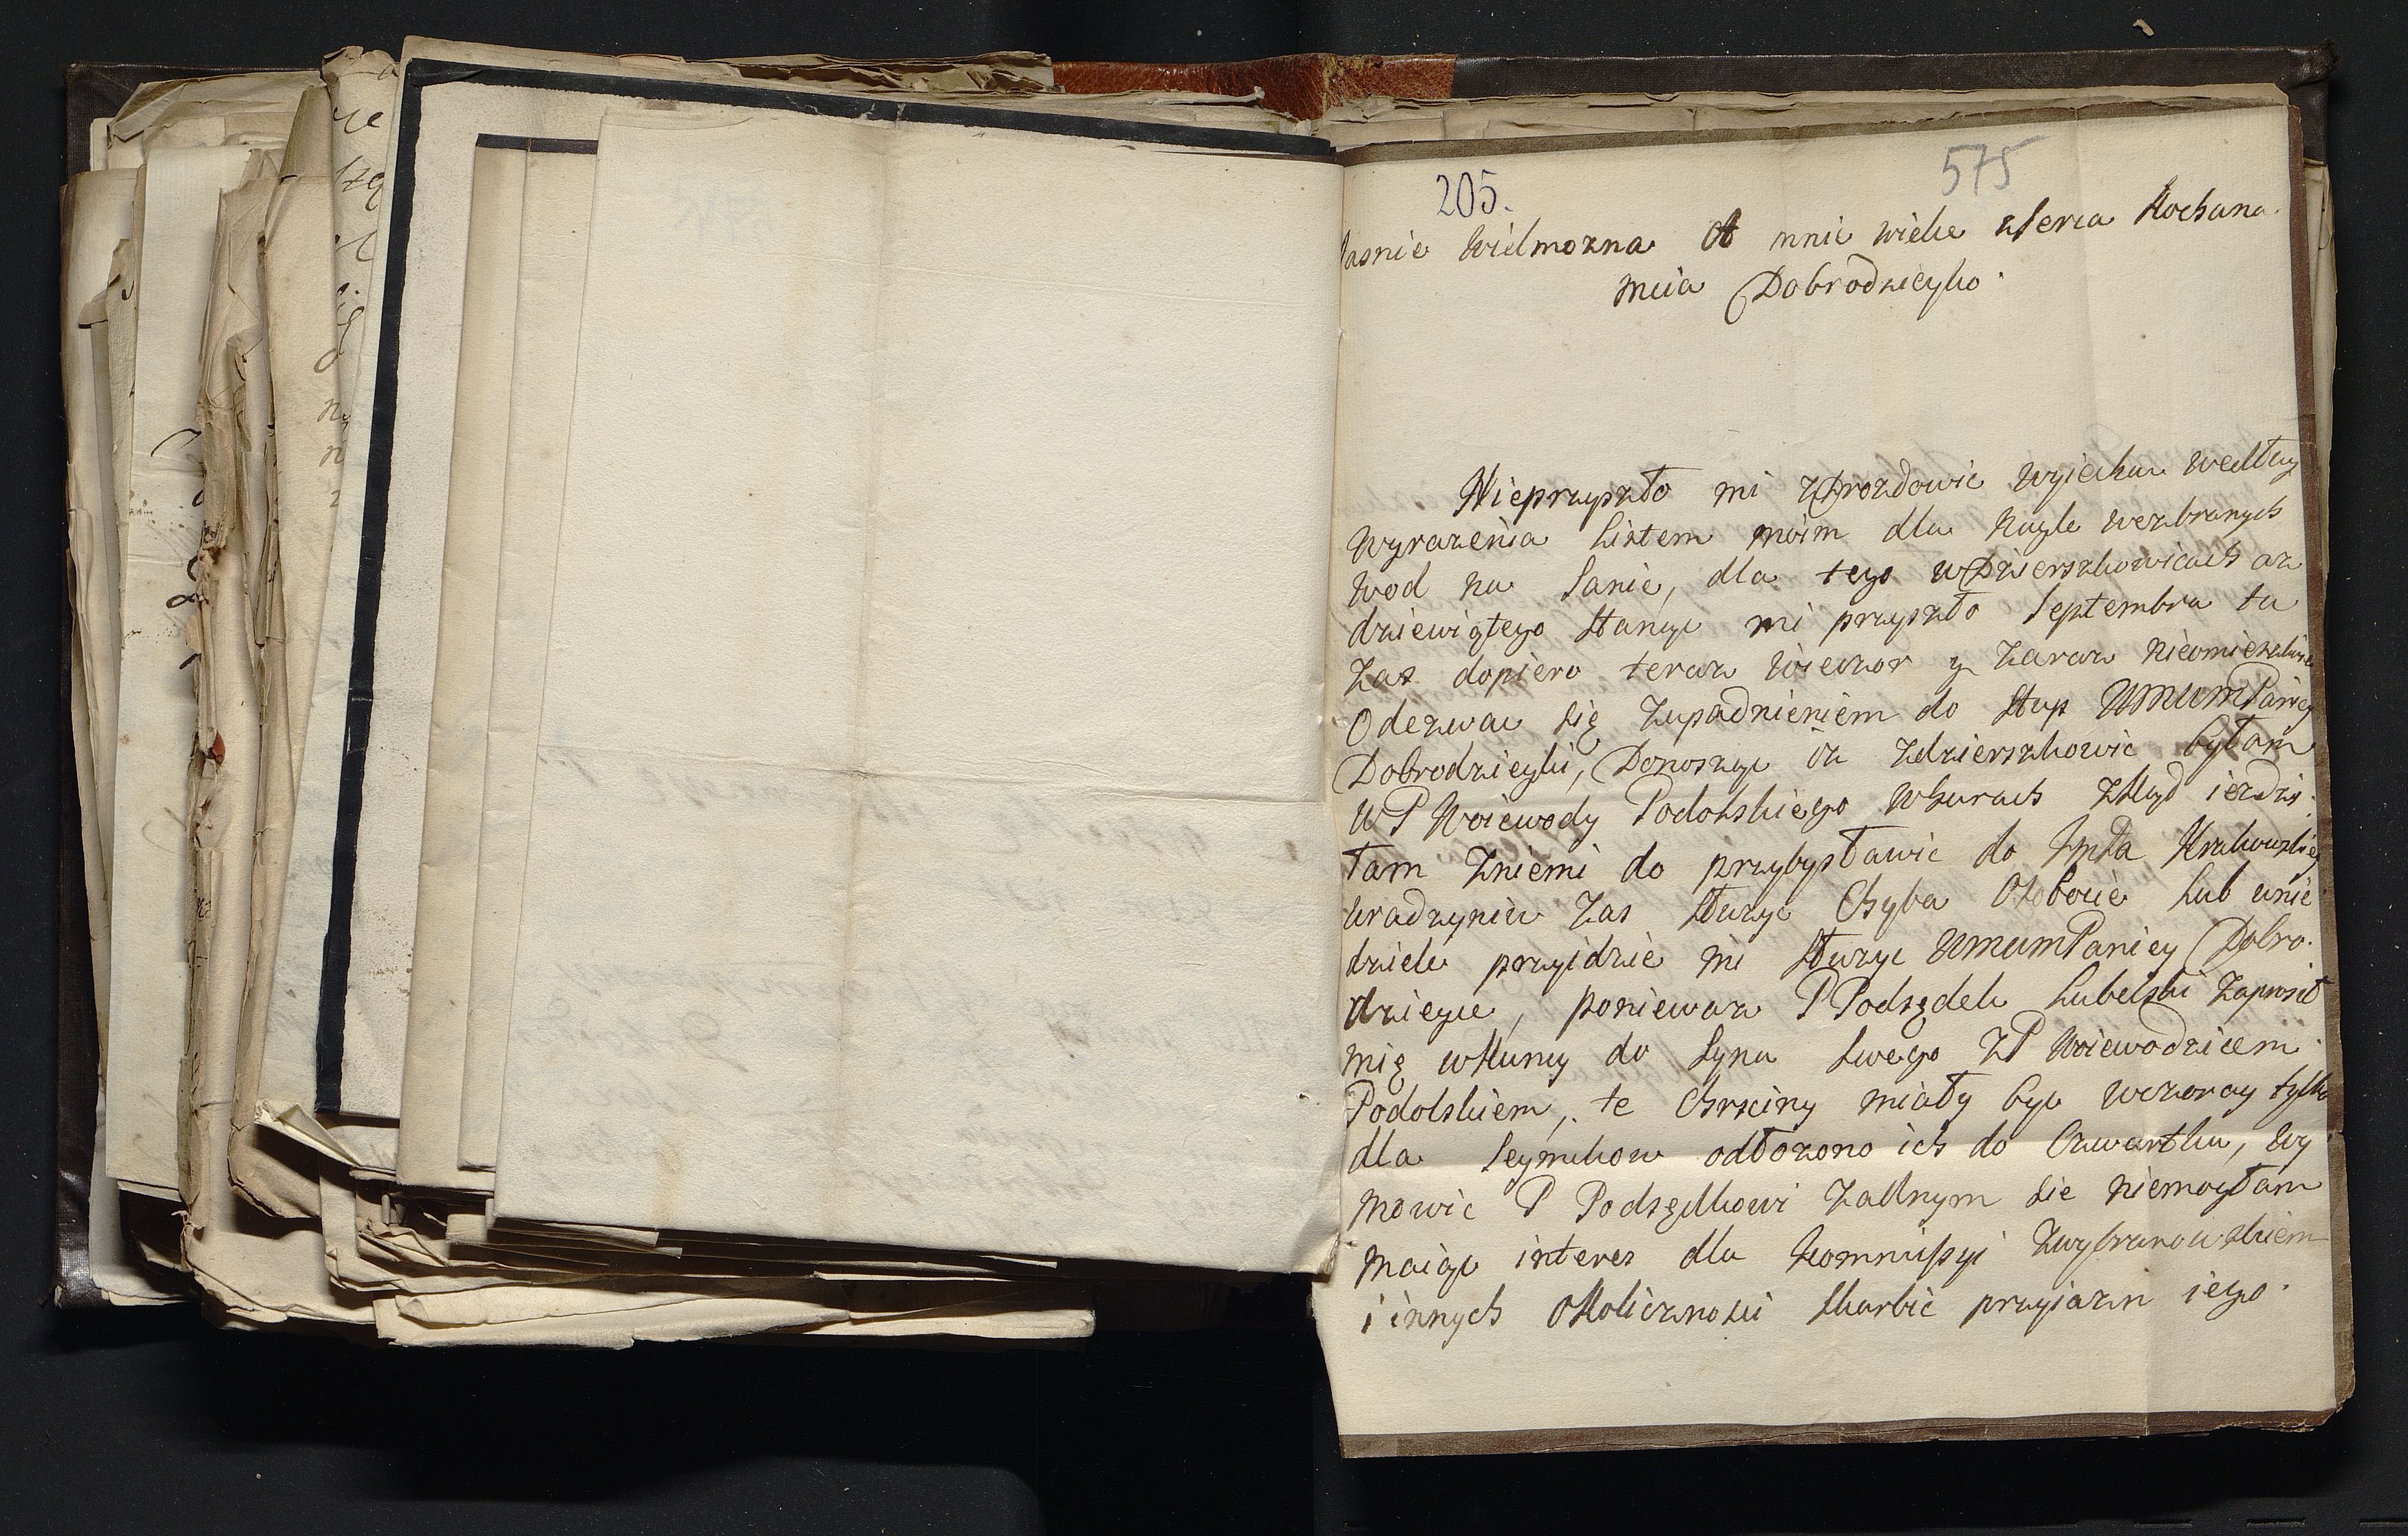 205.
575
Jasnie Wielmozna A mnie wielce zserca Kochana
mcia Dobrodzieyko
Nieprzyszło mi zDrozdowic wyiechac według
wyrazenia Listem moim dla nagle wezbranych
wod na Sanie, dla tego wDzierszkowicach az
dziewiątego stanąc mi przyszło Septembra tu
zas dopiero teraz wieczor y zaraz nieomieszkiwam
Odezwac się zupadnieniem do stup WMMM Paniey
Dobrodzieyki, Donosząc iz zdzierszkowic byłam
u P Woiewody Podolskiego whurach zkąd iezdzi-
łam zniemi do przybysławic do Xnża Krakowskiey
uradzyniu zas służyc Chyba Osobocie Lub unie
dziele przyidzie mi służyc WMMM Paniey Dobro-
dzieyce, poniewaz P Podsędek Lubelski zaprosił
mię wkumy do syna swego z P Woiewodzicem
Podolskiem, te Chrzciny miały byc wczoray tylko
dla Seymikow odłozono ich do Czwartku, wy
mowic P Podsędkowi zadnym sie niemogłam
maiąc interes dla kommissyi zwybranowskiem
i innych okolicznosci skarbic przyiazn iego